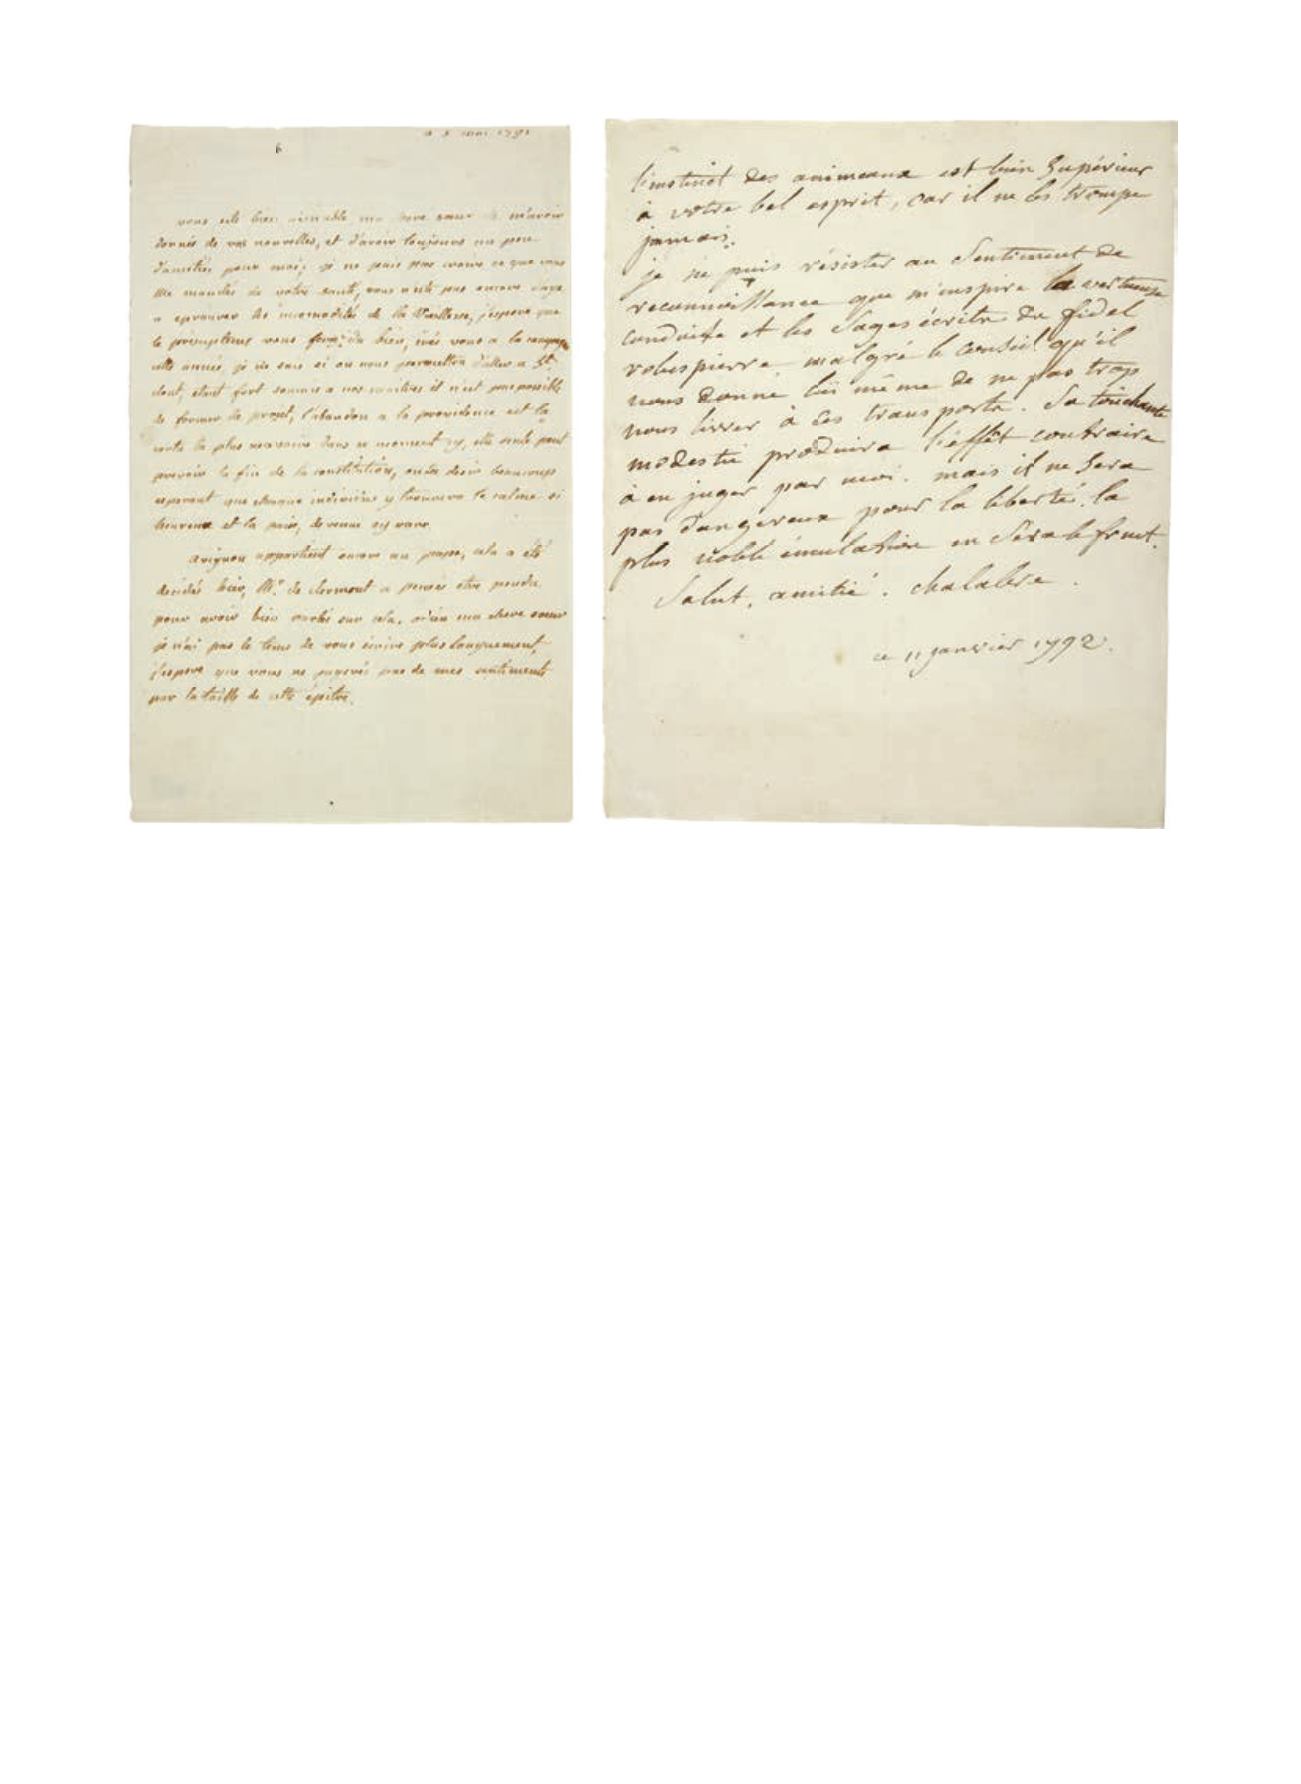 5 mai 1791
6
vous este bien aimable ma chere sœur de m'avoir
donnés de vos nouvelles, et d'avoir toujours un peu
d'amitiés pour moi, je ne puis pas croire ce que vous
me mandés de votre santé, vous n'este pas encore d'age
a eprouver les incomodités de la vieillesse, j'espere que
le préemptems vous fera du bien, irés vous a la campagne
cette année, je ne sais si on nous permettra d'aller a St.
clout, etant fort soumis a nos maitres il n'est pas possible
de former de projet, l'abandon a la providence est la
route la plus necessaire dans ce moment cy, elle seule peut
prevoir la fin de la constitution, on la desire beaucoups
esperant que chaque individus y trouvera le calme si
heureux et la paix, devenue sy rare.
avignon appartient encore au pape, cela a été
decidés hier, Mr. de clermont a pensés etre pendu
pour avoir bien parlés sur cela. adieu ma chere sœur
je n'ai pas le tems de vous écrire plus longuement,
j'espere que vous ne jugerés pas de mes sentiments
par la taille de cette épitre.
l'instinct des animeaux est bien Supérieur
à votre bel esprit, car il ne les trompe
jamais.
je ne puis résister au Sentiment de
reconnoissance que m'inspire la vertueuse
conduite et les Sages écrits du fidel
robespierre malgré le conseil qu'il
nous donne lui même de ne pas trop
nous livrer à ces transports. Sa touchante
modestie produira l'effêt contraire
à en juger par moi. mais il ne Sera
pas dangereux pour la liberté. la
plus noble émulation en Sera le fruit.
Salut, amitié. chalabre.
ce 11 janvier 1792.